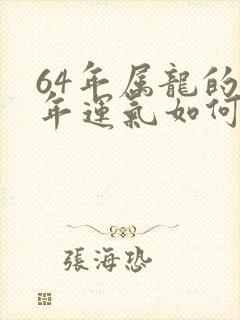 64年属龍的
年運氣如何
張海恐